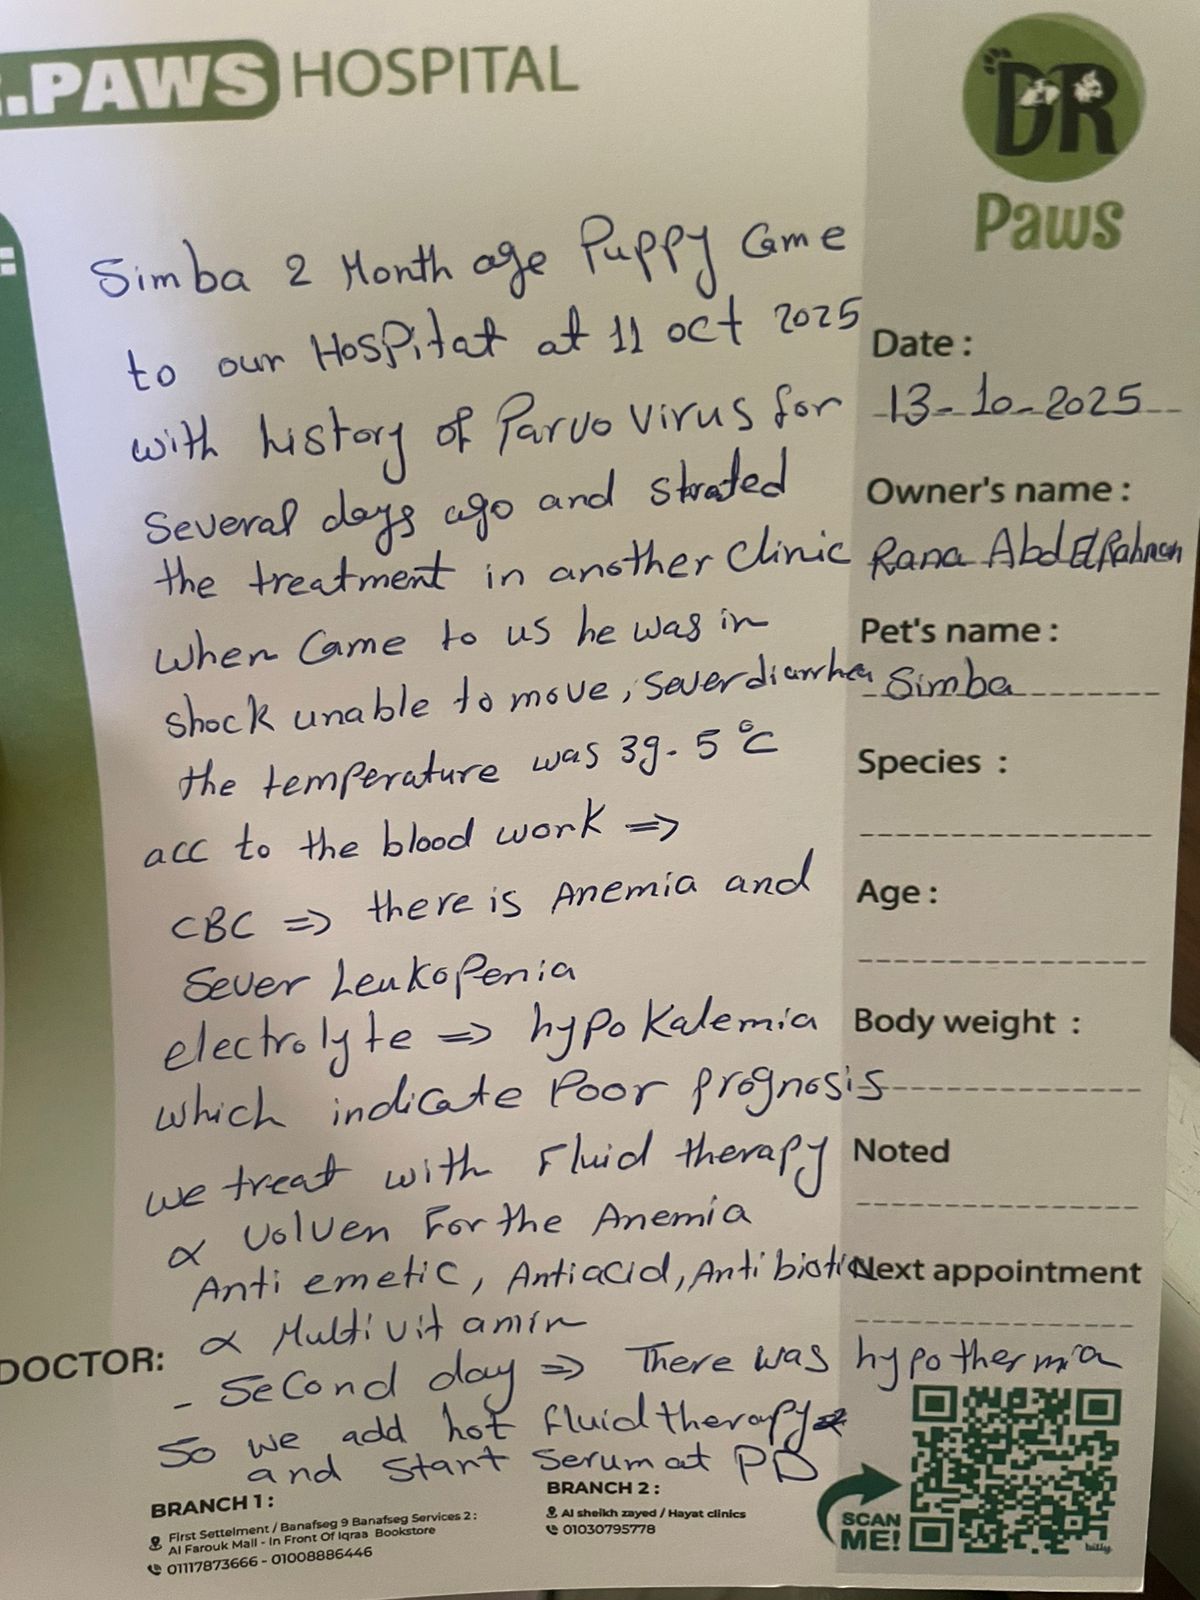 .PAWS HOSPITAL
DR
Paws
Simba 2 Month age Puppy Came
to our Hospitat at 11 oct 2025
with history of Parvo virus for
Several days ago and strated
the treatment in another Clinic
when Came to us he was in
shock unable to move, sever diarrhea
the temperature was 39.5 °C
acc to the blood work ⇒
CBC ⇒ there is Anemia and
Sever Leukopenia
electrolyte ⇒ hypokalemia
which indicate Poor prognosis
we treat with Fluid therapy
& Volven For the Anemia
Anti emetic, Antiacid, Antibiotic
& Multivitamin
- Second day ⇒ There was hypothermia
So we add hot fluid therapy
and start serum at PD
Date :
13-10-2025
Owner's name :
Rana Abd ElRahman
Pet's name :
Simba
Species :
Age :
Body weight :
Noted
Next appointment
DOCTOR:
BRANCH 1 :
First Settelment / Banafseg 9 Banafseg Services 2 :
Al Farouk Mall - In Front Of Iqraa Bookstore
01117873666 - 01008886446
BRANCH 2 :
Al sheikh zayed / Hayat clinics
01030795778
SCAN
ME!
billy